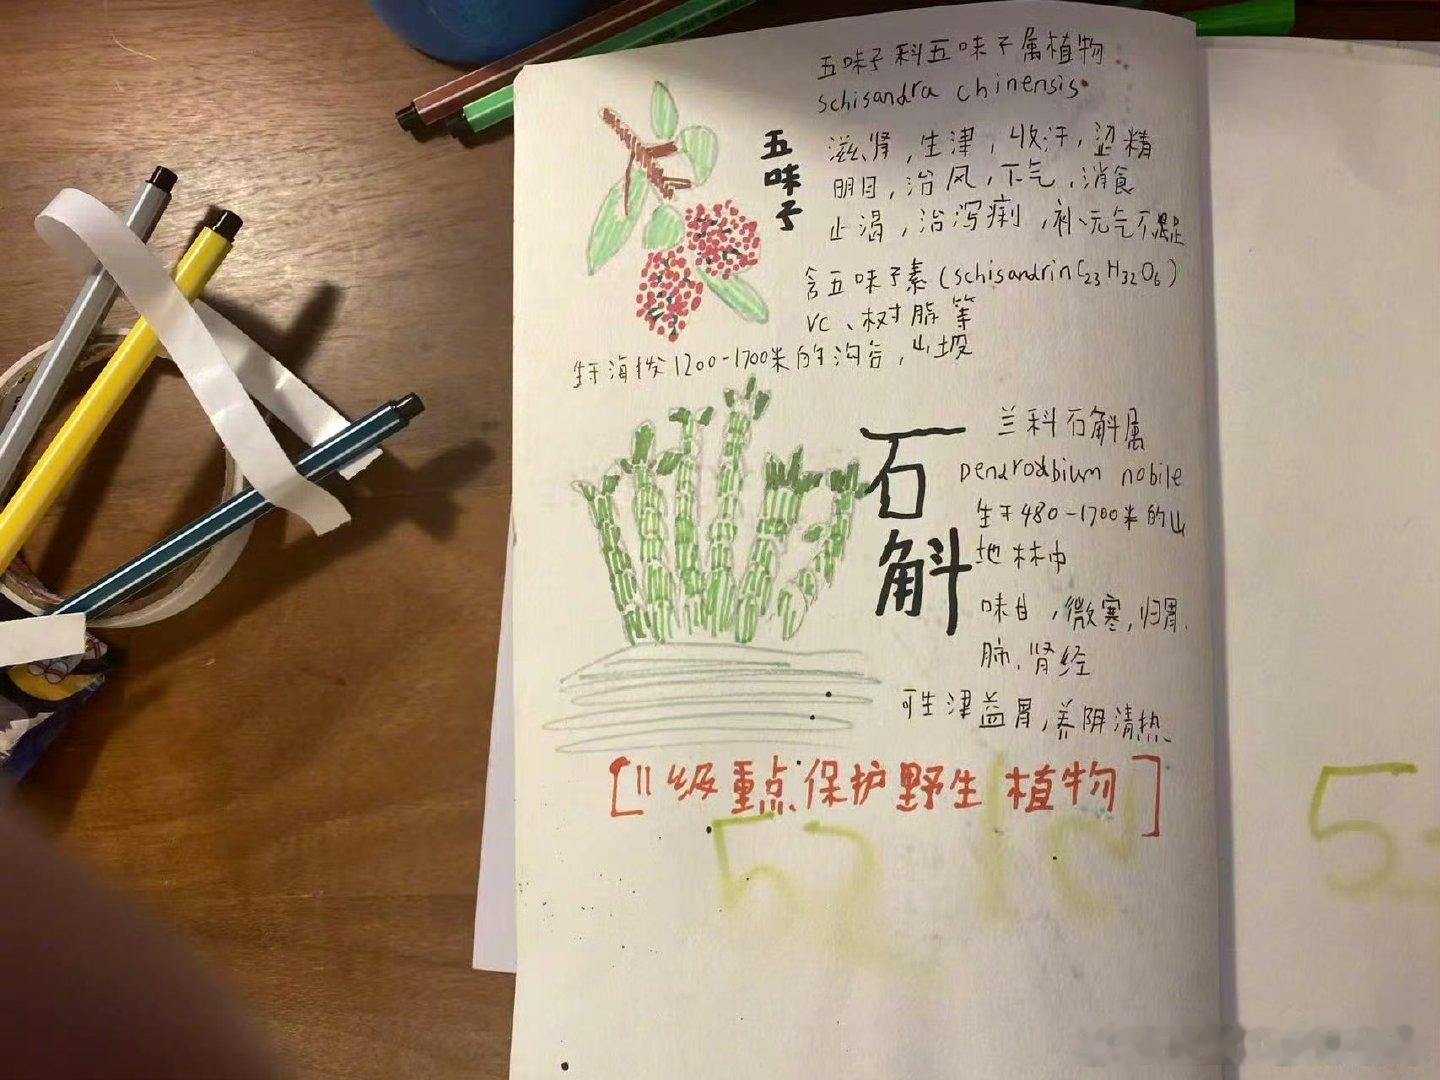 五味子科五味子属植物
schisandra chinensis
五味子
滋肾,生津,收汗,涩精
明目,治风,下气,消食
止渴,治泻痢,补元气不足
含五味子素(schisandrin C23H32O6)
VC、树脂等
生于海拔1200-1700米的沟谷,山坡
石斛
兰科石斛属
Dendrodbium nobile
生于480-1700米的山
地林中
味甘,微寒,归胃、
肺、肾经
可生津益胃,养阴清热
[II级重点保护野生植物]
52
52